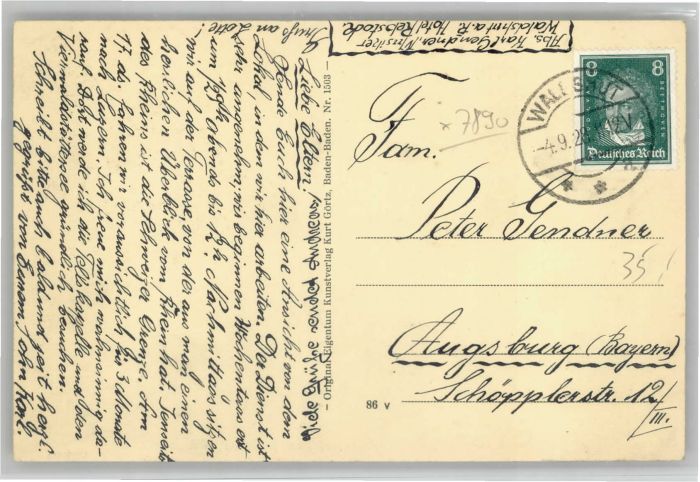 Liebe Eltern!
Sende Euch hier eine Ansicht von dem
Lokal, in dem wir hier arbeiten. Der Dienst ist
sehr angenehm, wir beginnen Wochentags erst
um Abends bis Nachmittags sitzen
wir auf der Terrasse, von der aus man einen
herrlichen Überblick vom Rhein hat. Jenseits
des Rheins ist die Schweizer Grenze. Am
17. ds. fahren wir voraussichtlich für 3 Monate
nach Lugern. Ich freue mich wahnsinnig da-
rauf. Dort werde ich die Tellskapelle und den
Vierwaldstättersee gründlich beschauen.
Schreibt bitte auch baldmöglichst
gegrüßt von Eurem Sohn Karl.
Gruß an Lotte!
Viele Grüße sendet
Abs. Karl Gendner, Musiker
Waldshut a. R. Hotel Rebstock.
– Original Eigentum Kunstverlag Kurt Görtz, Baden-Baden. Nr. 1503 –
86 v
8 8
BEETHOVEN
Deutsches Reich
WALDSHUT
-4.9.2
x 7890
Fam.
Peter Gendner
35!
Augsburg (Bayern)
Schöpplerstr. 12/
III.